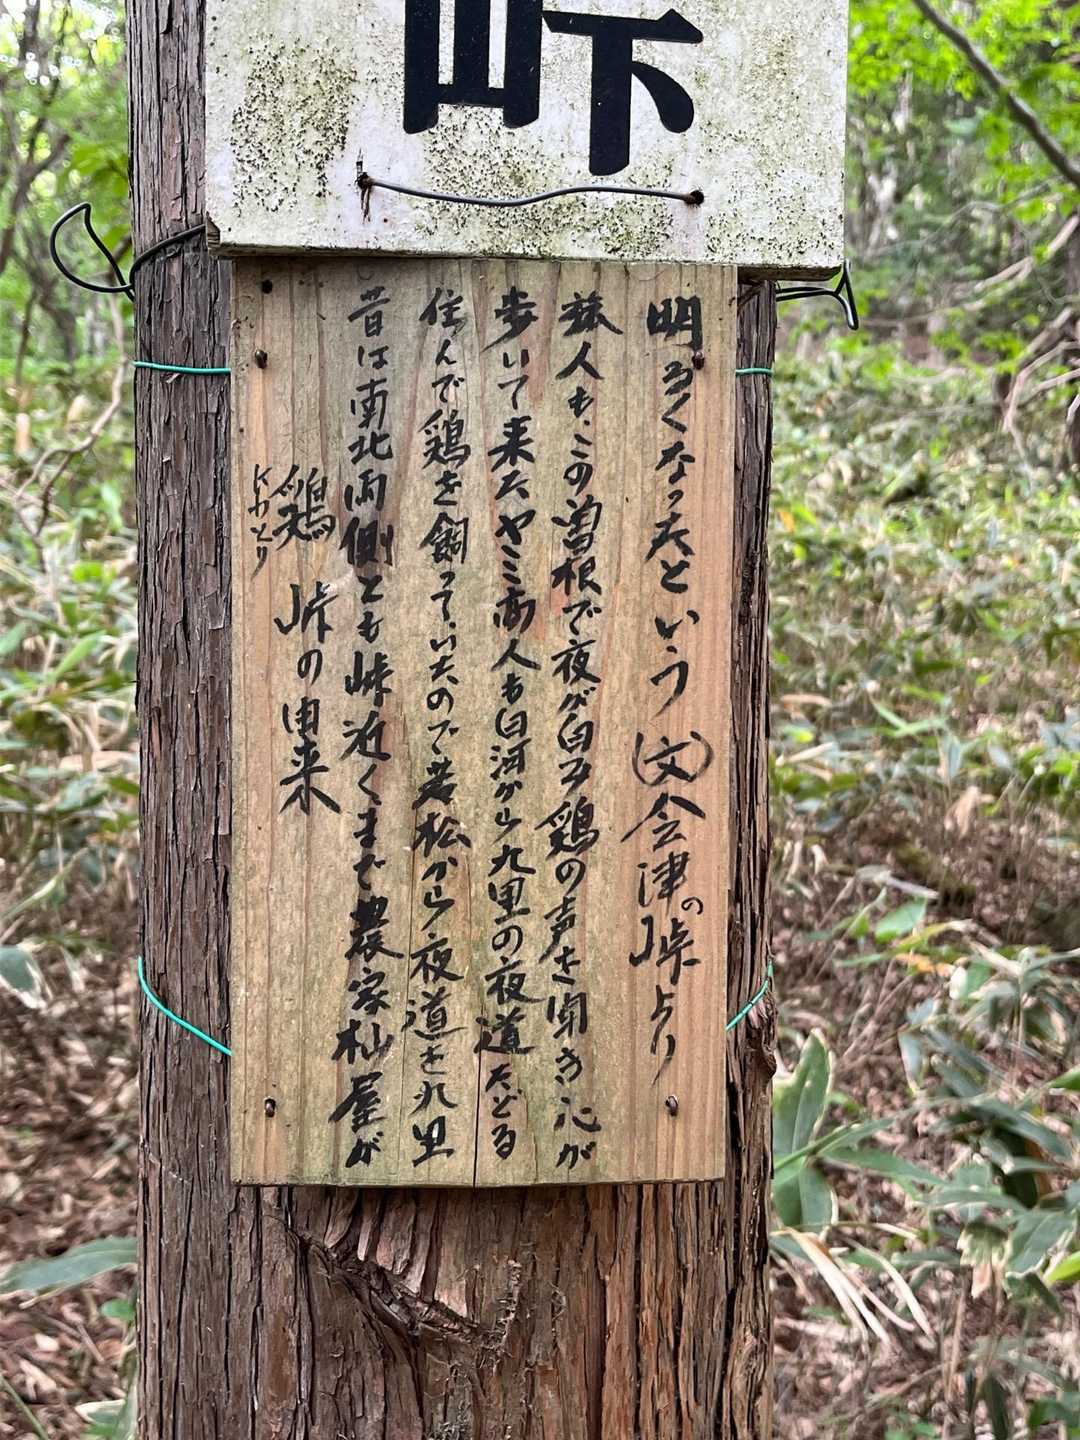 峠
鶏峠の由来
にわとり
昔は南北両側とも峠近くまで農家杣屋が
住んで鶏を飼っていたので若松から夜道を九里
歩いて来たヤミ商人も白河から九里の夜道たどる
旅人も、この曽根で夜が白み鶏の声を聞き心が
明るくなったという(文)会津の峠より